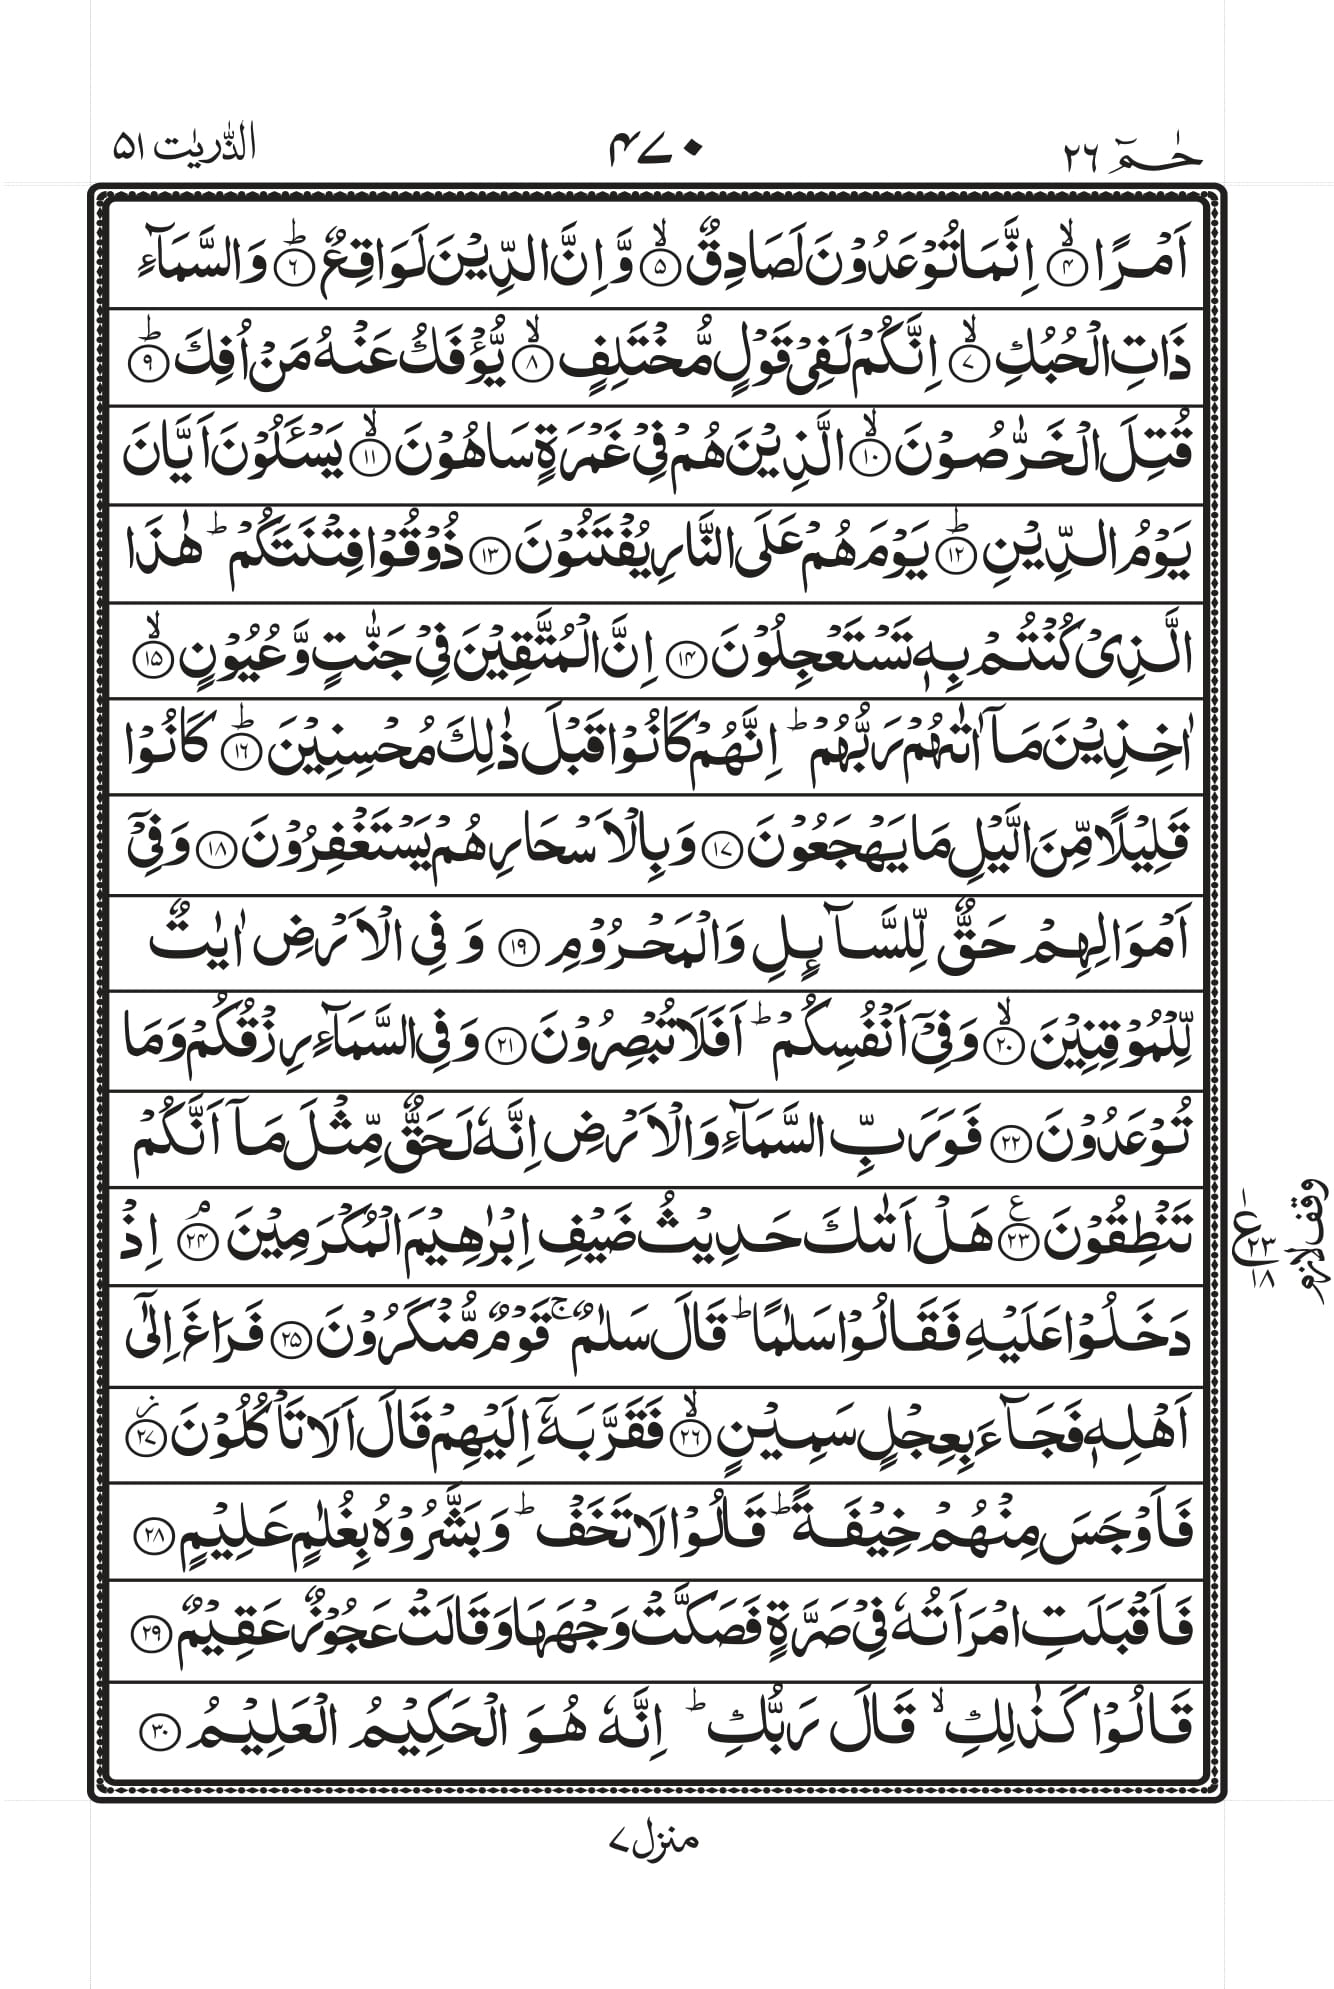 حٰمٓ ٢٦ ۴۷۰ الذّٰرِیٰت ۵۱
اَمْرًا ۙ‏﴿۴﴾ اِنَّمَا تُوْعَدُوْنَ لَصَادِقٌ ۙ‏﴿۵﴾ وَّ اِنَّ الدِّیْنَ لَوَاقِعٌ ؕ‏﴿۶﴾ وَ السَّمَآءِ
ذَاتِ الْحُبُكِ ۙ‏﴿۷﴾ اِنَّكُمْ لَفِیْ قَوْلٍ مُّخْتَلِفٍ ۙ‏﴿۸﴾ یُّؤْفَكُ عَنْهُ مَنْ اُفِكَ ؕ‏﴿۹﴾
قُتِلَ الْخَرّٰصُوْنَ ۙ‏﴿۱۰﴾ الَّذِیْنَ هُمْ فِیْ غَمْرَةٍ سَاهُوْنَ ۙ‏﴿۱۱﴾ یَسْـَٔلُوْنَ اَیَّانَ
یَوْمُ الدِّیْنِ ؕ‏﴿۱۲﴾ یَوْمَ هُمْ عَلَی النَّارِ یُفْتَنُوْنَ ﴿۱۳﴾ ذُوْقُوْا فِتْنَتَكُمْ ؕ هٰذَا
الَّذِیْ كُنْتُمْ بِهٖ تَسْتَعْجِلُوْنَ ﴿۱۴﴾ اِنَّ الْمُتَّقِیْنَ فِیْ جَنّٰتٍ وَّ عُیُوْنٍ ۙ‏﴿۱۵﴾
اٰخِذِیْنَ مَاۤ اٰتٰىهُمْ رَبُّهُمْ ؕ اِنَّهُمْ كَانُوْا قَبْلَ ذٰلِكَ مُحْسِنِیْنَ ؕ‏﴿۱۶﴾ كَانُوْا
قَلِیْلًا مِّنَ الَّیْلِ مَا یَهْجَعُوْنَ ﴿۱۷﴾ وَ بِالْاَسْحَارِ هُمْ یَسْتَغْفِرُوْنَ ﴿۱۸﴾ وَ فِیْۤ
اَمْوَالِهِمْ حَقٌّ لِّلسَّآىِٕلِ وَ الْمَحْرُوْمِ ﴿۱۹﴾ وَ فِی الْاَرْضِ اٰیٰتٌ
لِّلْمُوْقِنِیْنَ ۙ‏﴿۲۰﴾ وَ فِیْۤ اَنْفُسِكُمْ ؕ اَفَلَا تُبْصِرُوْنَ ﴿۲۱﴾ وَ فِی السَّمَآءِ رِزْقُكُمْ وَ مَا
تُوْعَدُوْنَ ﴿۲۲﴾ فَوَ رَبِّ السَّمَآءِ وَ الْاَرْضِ اِنَّهٗ لَحَقٌّ مِّثْلَ مَاۤ اَنَّكُمْ
تَنْطِقُوْنَ ﴿۲۳﴾ ع هَلْ اَتٰىكَ حَدِیْثُ ضَیْفِ اِبْرٰهِیْمَ الْمُكْرَمِیْنَ ۘ‏﴿۲۴﴾ اِذْ
۱ ع ۲۳ ۱۸ وقف لازم
دَخَلُوْا عَلَیْهِ فَقَالُوْا سَلٰمًا ؕ قَالَ سَلٰمٌ ۚ قَوْمٌ مُّنْكَرُوْنَ ﴿۲۵﴾ فَرَاغَ اِلٰۤی
اَهْلِهٖ فَجَآءَ بِعِجْلٍ سَمِیْنٍ ۙ‏﴿۲۶﴾ فَقَرَّبَهٗۤ اِلَیْهِمْ قَالَ اَلَا تَاْكُلُوْنَ ز ﴿۲۷﴾
فَاَوْجَسَ مِنْهُمْ خِیْفَةً ؕ قَالُوْا لَا تَخَفْ ؕ وَ بَشَّرُوْهُ بِغُلٰمٍ عَلِیْمٍ ﴿۲۸﴾
فَاَقْبَلَتِ امْرَاَتُهٗ فِیْ صَرَّةٍ فَصَكَّتْ وَجْهَهَا وَ قَالَتْ عَجُوْزٌ عَقِیْمٌ ﴿۲۹﴾
قَالُوْا كَذٰلِكِ ۙ قَالَ رَبُّكِ ؕ اِنَّهٗ هُوَ الْحَكِیْمُ الْعَلِیْمُ ﴿۳۰﴾
منزل ۷